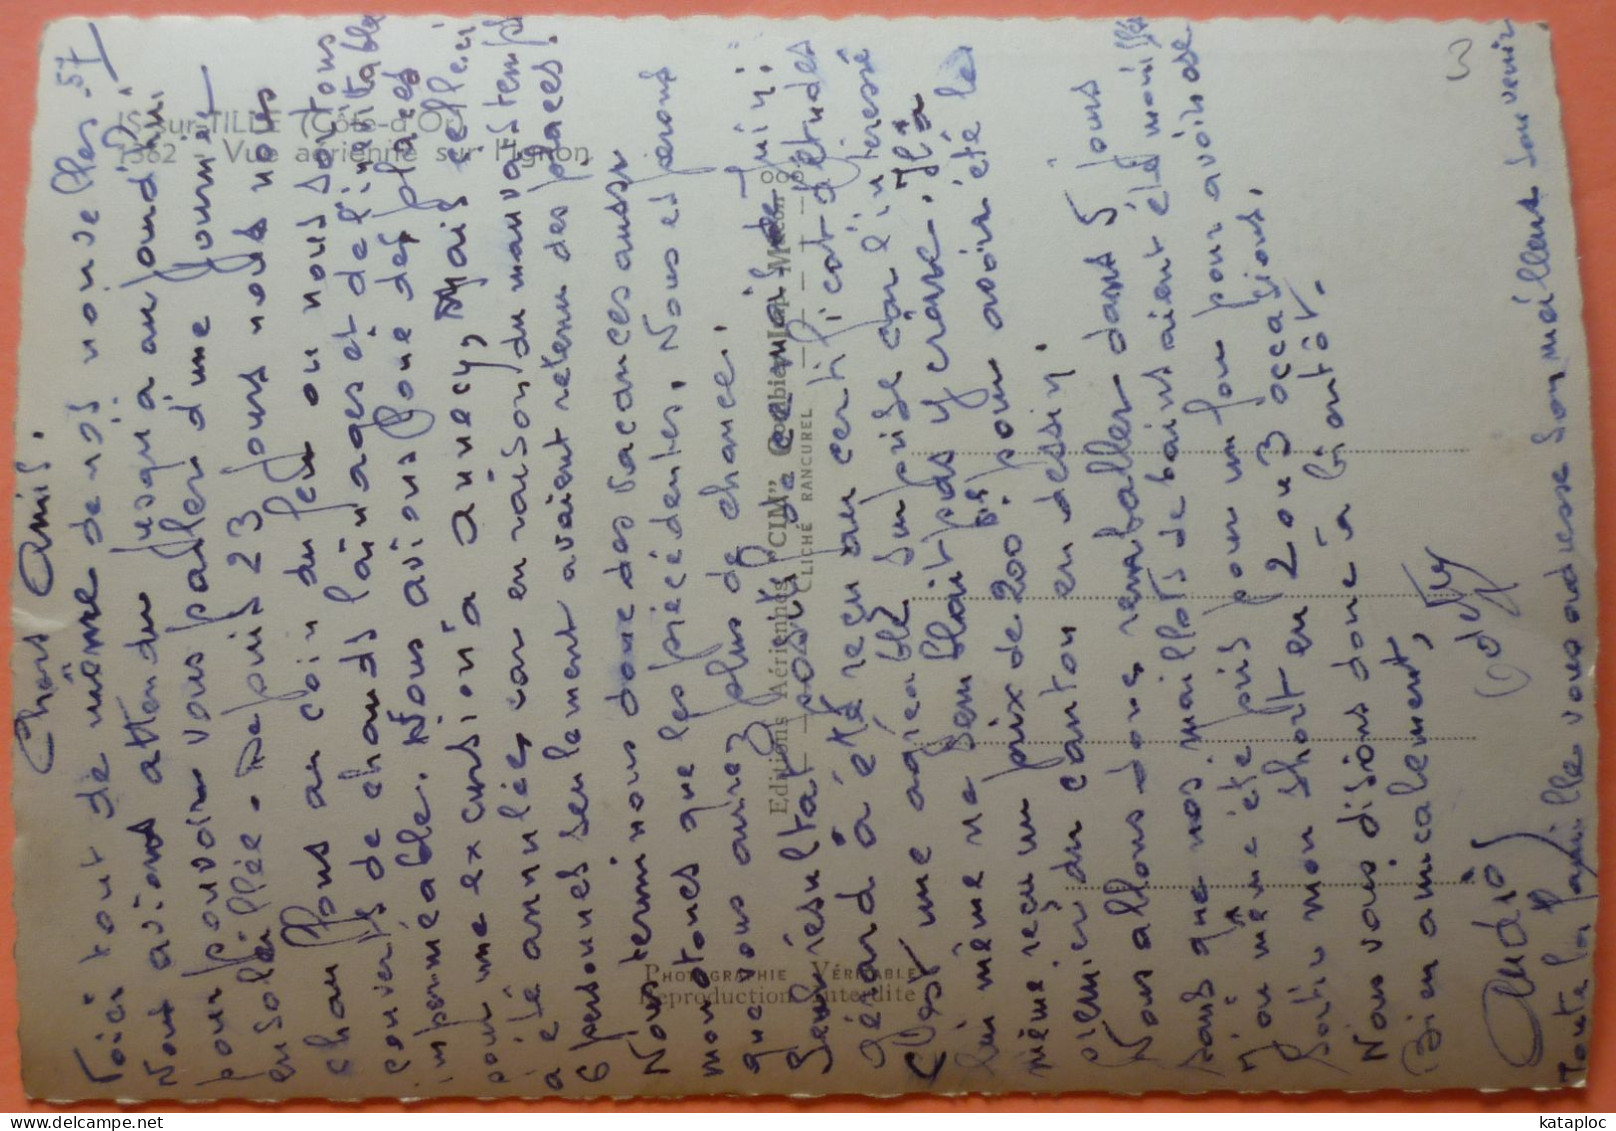 IS-sur-TILLE (Côte-d'Or)
1362 Vue aérienne sur l'Ignon
Editions Aériennes "CIM" Combier Imp. Macon
CLICHÉ RANCUREL
PHOTOGRAPHIE VÉRITABLE
Reproduction interdite
3
57
Chers Amis.
Voici tout de même de nos nouvelles.
Nous avions attendu jusqu'à aujourd'hui
pour pouvoir vous parler d'une journée
ensoleillée. Depuis 23 jours nous nous
chauffons au coin du feu ou nous sortons
couverts de chauds lainages et de l'inévitable
imperméable. Nous avions donc des places
pour une excursion à Annecy, Mais celle ci
a été annulée car en raison du mauvais temps
6 personnes seulement avaient retenu des places.
Nous terminons donc des vacances aussi
monotones que les précédentes. Nous espérons
que vous aurez plus de chance.
Seul résultat positif de ce mois de Juin:
Gérard a été reçu au certificat d'études
C'est une agréable surprise car l'intéressé
lui même ne semblait pas y croire. Il a
même reçu un prix de 200 pour avoir été le
premier du canton en dessin.
Nous allons donc remballer dans 5 jours
sans que nos maillots de bains aient été mouillés
J'ai même été pris pour un fou pour avoir osé
sortir mon short en 2 ou 3 occasions.
Nous vous disons donc à bientôt.
Bien amicalement,
Toute la famille vous adresse son meilleur souvenir
kataploc